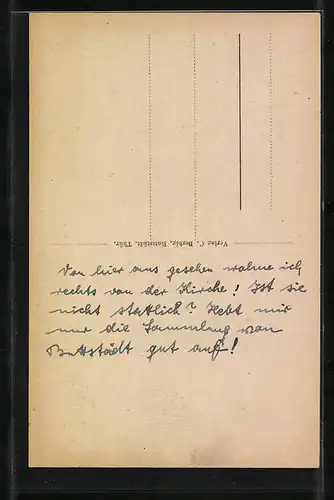 Verlag C. Burbig, Buttstädt, Thür.
Von hier aus gesehen wohne ich
rechts von der Kirche! Ist sie
nicht stattlich? Hebt mir
nur die Sammlung von
Buttstädt gut auf!